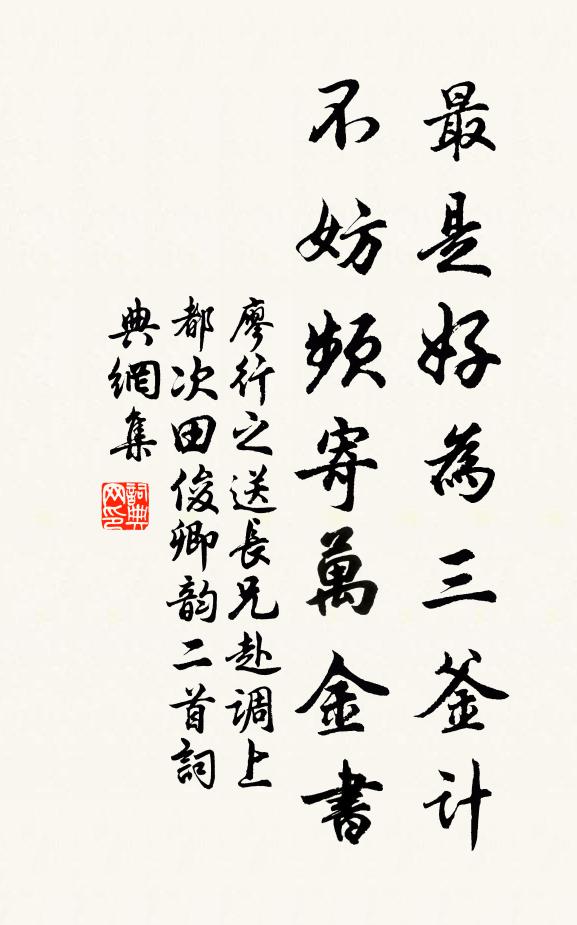 最是好為三釜计
不妨频寄萬金書
廖行之送長兄赴调上
都次田俊卿韵二首詞
典網集
詞典
网印